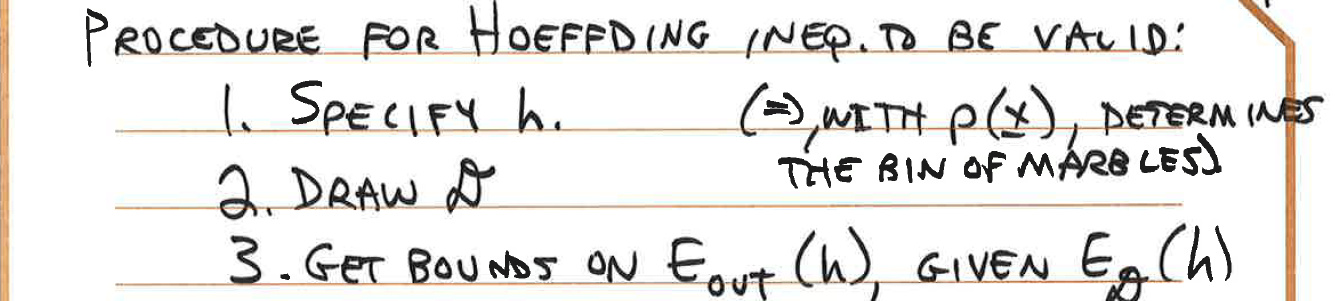 PROCEDURE FOR HOEFFDING INEQ. TO BE VALID:
1. SPECIFY h. (⇒, WITH p(x), DETERMINES
THE BIN OF MARBLES)
2. DRAW 𝒟
3. GET BOUNDS ON E_OUT (h), GIVEN E_𝒟 (h)